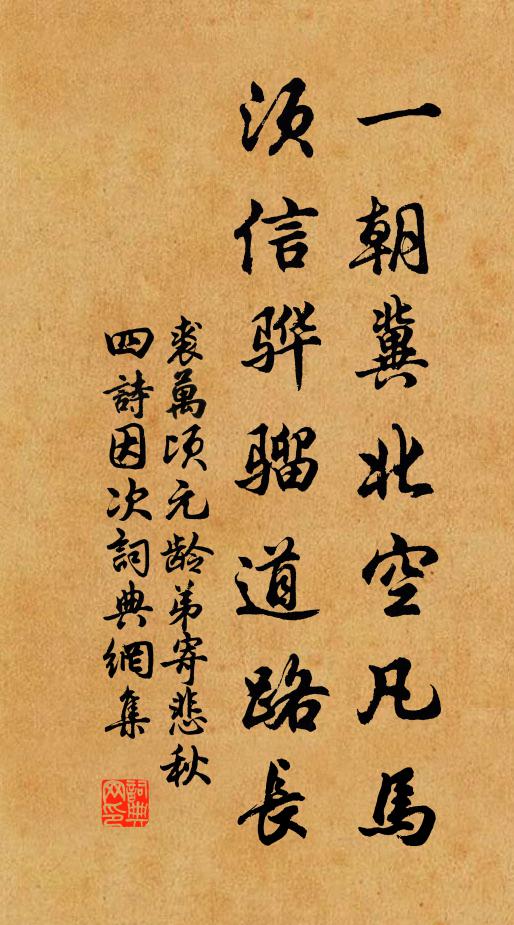 一朝冀北空凡馬
须信骅骝道路長
裘萬顷元龄弟寄悲秋
四詩因次詞典網集
詞典网印